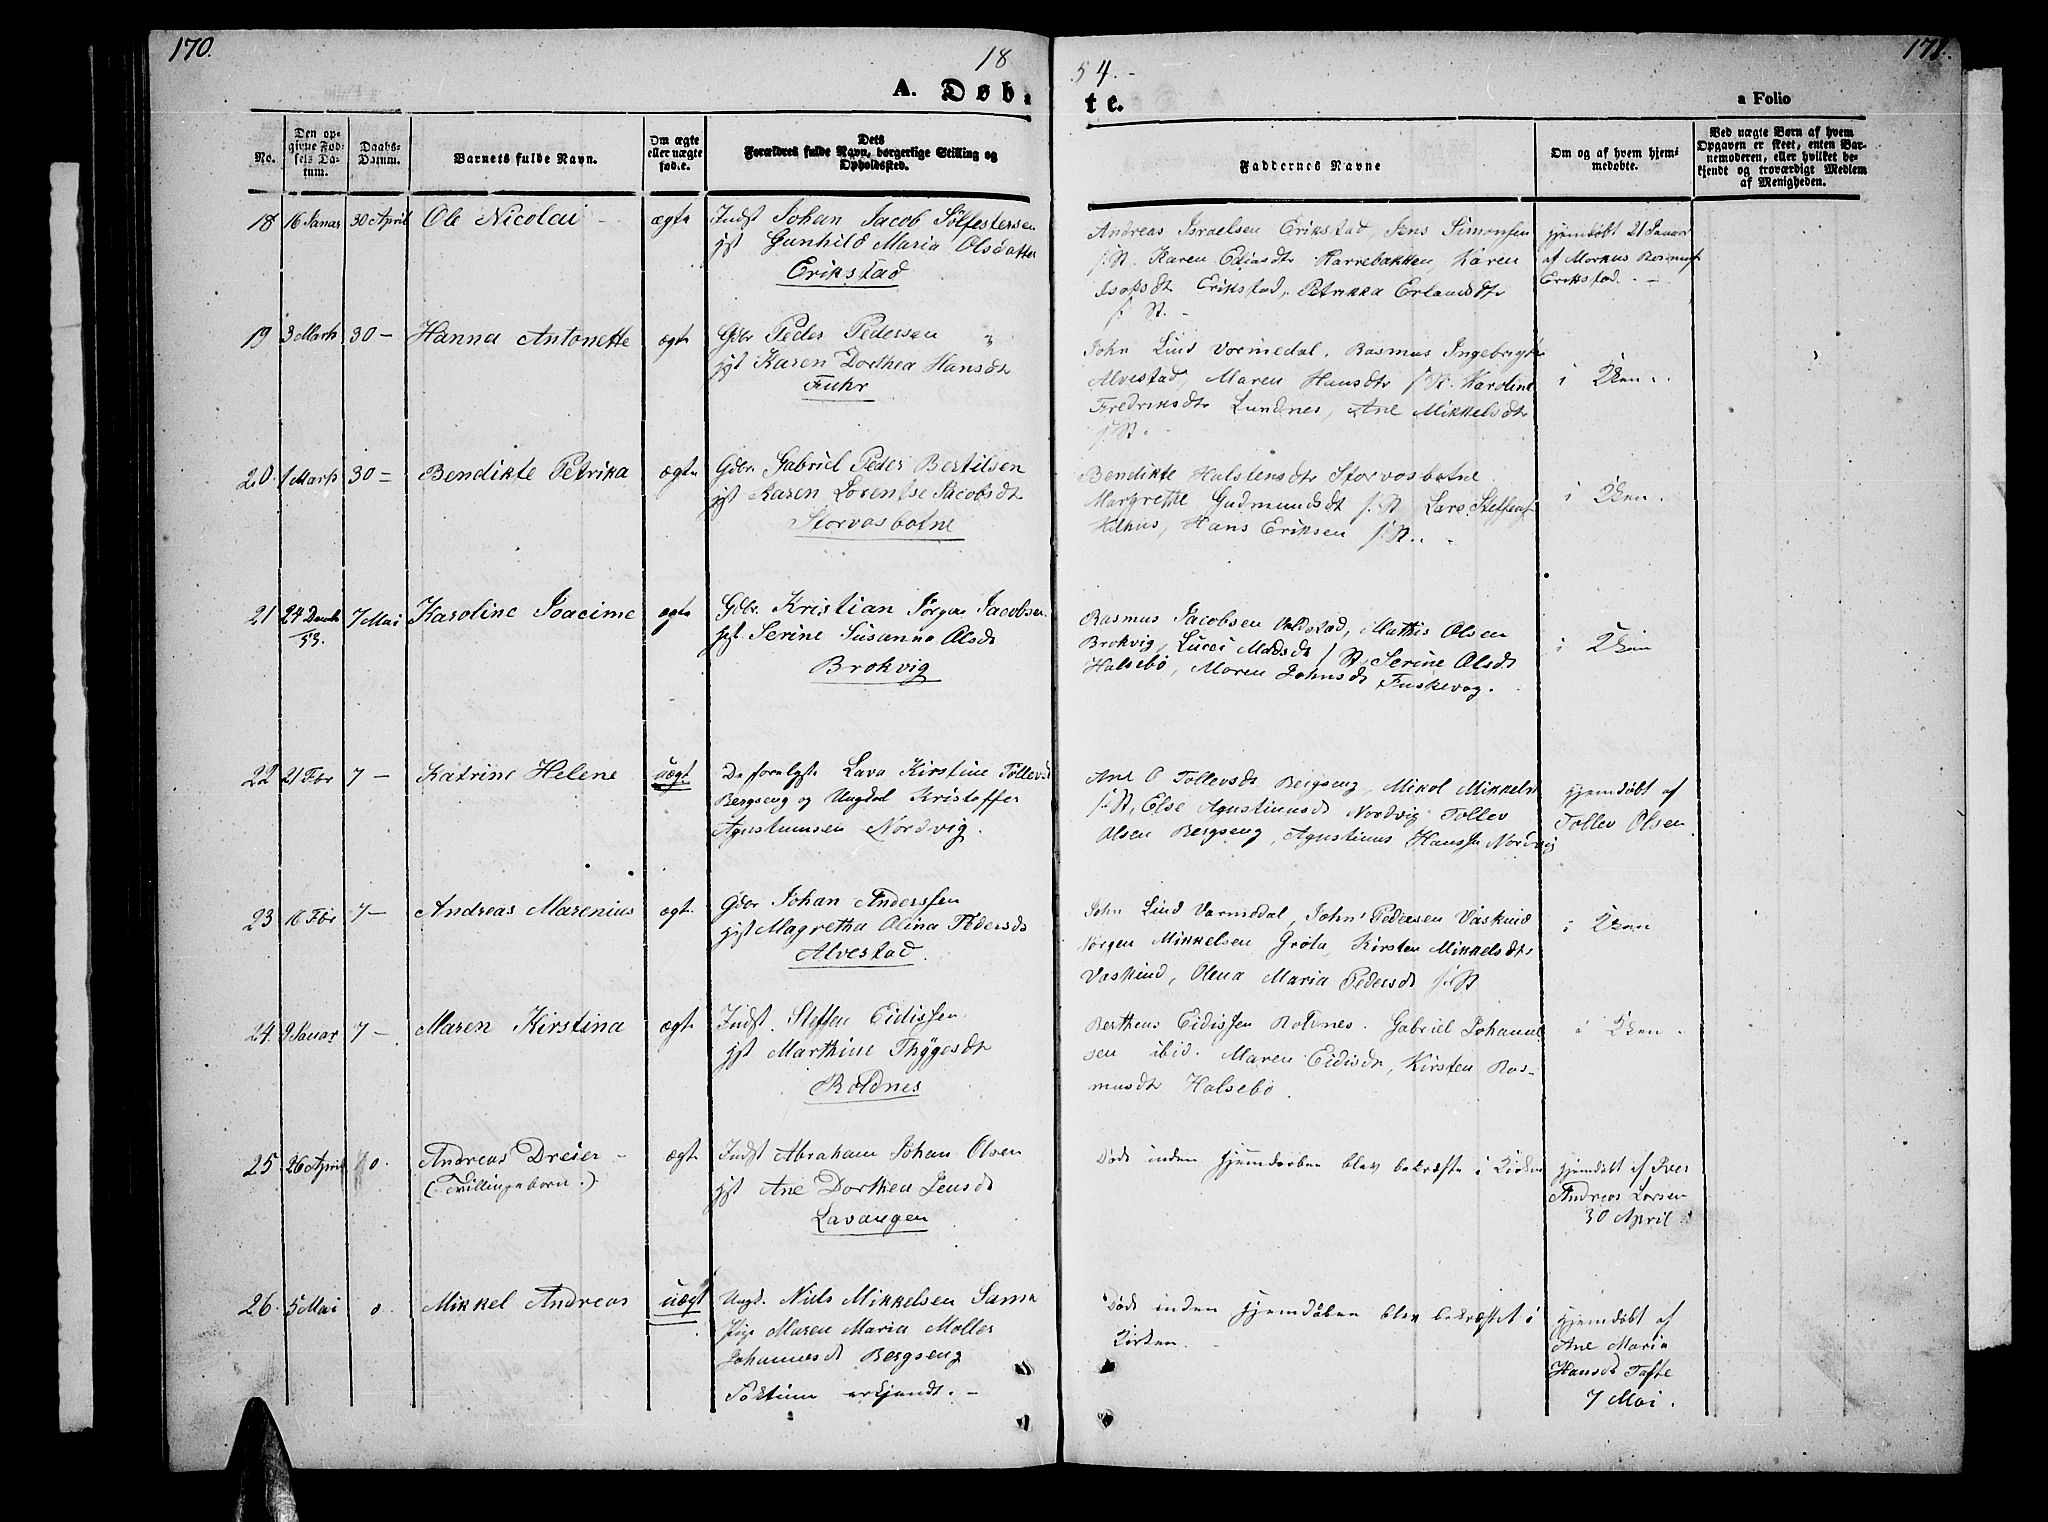 170.
18
54.
171.
A. Døb-
te.
a Folio
No.
Den op-
givne Fød-
sels Da-
tum.
Daabs-
Datum.
Barnets fulde Navn.
Om ægte
eller uægte
fød.e.
Dets
Forældres fulde Navn, borgerlige Stilling og
Opholdssted.
Faddernes Navne
Om og af hvem hjem-
medøbte.
Ved uægte Børn af hvem
Opgaven er skeet, enten Bar-
nemoderen, eller hvilket be-
kjendt og troværdigt Medlem
af Menigheden.
18 16 Januar 30 April Ole Nicolai ægte Indst Johan Jacob Sølfestersen
jgt Gunhild Maria Olsdatter
Erikstad
Andreas Israelsen Erikstad, Jens Simonsen
s. St. Karen Ediasdtr Harrebakken, Karen
Isaksdt Erikstad, Petrikka Erlandsdtr
s. St.
hjemdøbt 21 Januar
af Markus Rasmus
Erikstad.
19 3 Marts 30 – Hanna Antonette ægte Gdbr Peder Pedersen
jgt Karen Dorthea Hansdtr
Fuhr
John Lind Vormedal, Rasmus Ingebrigts
Alvestad, Maren Hansdtr s. St. Karoline
Fredriksdtr Lundnes, Ane Mikkelsdtr
s. St.
i Kken.
20. 1 Marts 30 = Bendikte Petrika ægte Gdbr. Gabriel Peder Bertilsen
jgt Karen Lorentse Jacobsdt
Storvasbotne
Bendikte Halstensdtr Storvasbotne
Margrethe Gudmundsdt s. St. Lars Steffens
Kilhus, Hans Eriksen s. St.
i Kken.
21 24 Decmb 53. 7 Mai Karoline Joacime ægte Gdbr. Kristian Jørgen Jacobsen
jgt. Serine Susanna Olsdt
Brokvig
Rasmus Jacobsen Voldstad, Mathis Olsen
Brokvig, Lucei Madsdt s. St, Serine Olsdt
Halsebø, Maren Johnsdt Fuskevog.
i Kken
22 21 Fbr 7 – Katrine Helene uægt De forulgte Lava Kirstine Tollevsd
Bergseng og Ungdol Kristoffer
Agustinusen Nordvig.
Ane O Tollevsdt Bergseng, Mikol Mikkels
s. St, Else Agustinusdt Nordvig Tollev
Olsen Bergseng, Agustinus Hanssn Nordvig
hjemdøbt af
Tollev Olsen
23 16 Fbr 7 – Andreas Marenius ægt. Gdbr Johan Anderssen
jgt Magretha Olina Pedersdt
Alvestad.
John Lind Varmedal, John Pedersen Vaskind
Jørgen Mikkelsen Grøta, Kirsten Mikkelsdtr
Vaskind, Olena Maria Pedersdt s. St
i Kken
24. 9 Januar 7 – Maren Kirstina ægt Indst. Steffen Eidissen.
jgt Marthine Thygesdt
Roldnes
Bertheus Eidissen Roldnes. Gabriel Johannes-
sen ibid. Maren Eidisdr, Kirsten Ras-
musdtr Halsebø
i Kken.
25 26 April o. Andreas Dreier –
(Tvillingeborn.)
ægte Indst Abraham Johan Olsen
jgt Ane Dorthea Jensdt
Lavangen
Døde inden hjemdaaben blev bekræfte i Kirken
hjemdøbt af Iver
Andreas Larsen
30 April
26. 5 Mai o. Mikkel Andreas uægt Ungd. Niels Mikkelsen Sama
Pige Maren Maria Moller
Johannesdt Bergseng
erkjendt. –
Døde inden hjemdåben blev bekræftet i
Kirken.
hjemdøbt af
Ane Maria
Hansdt Tofte
7 Mai.